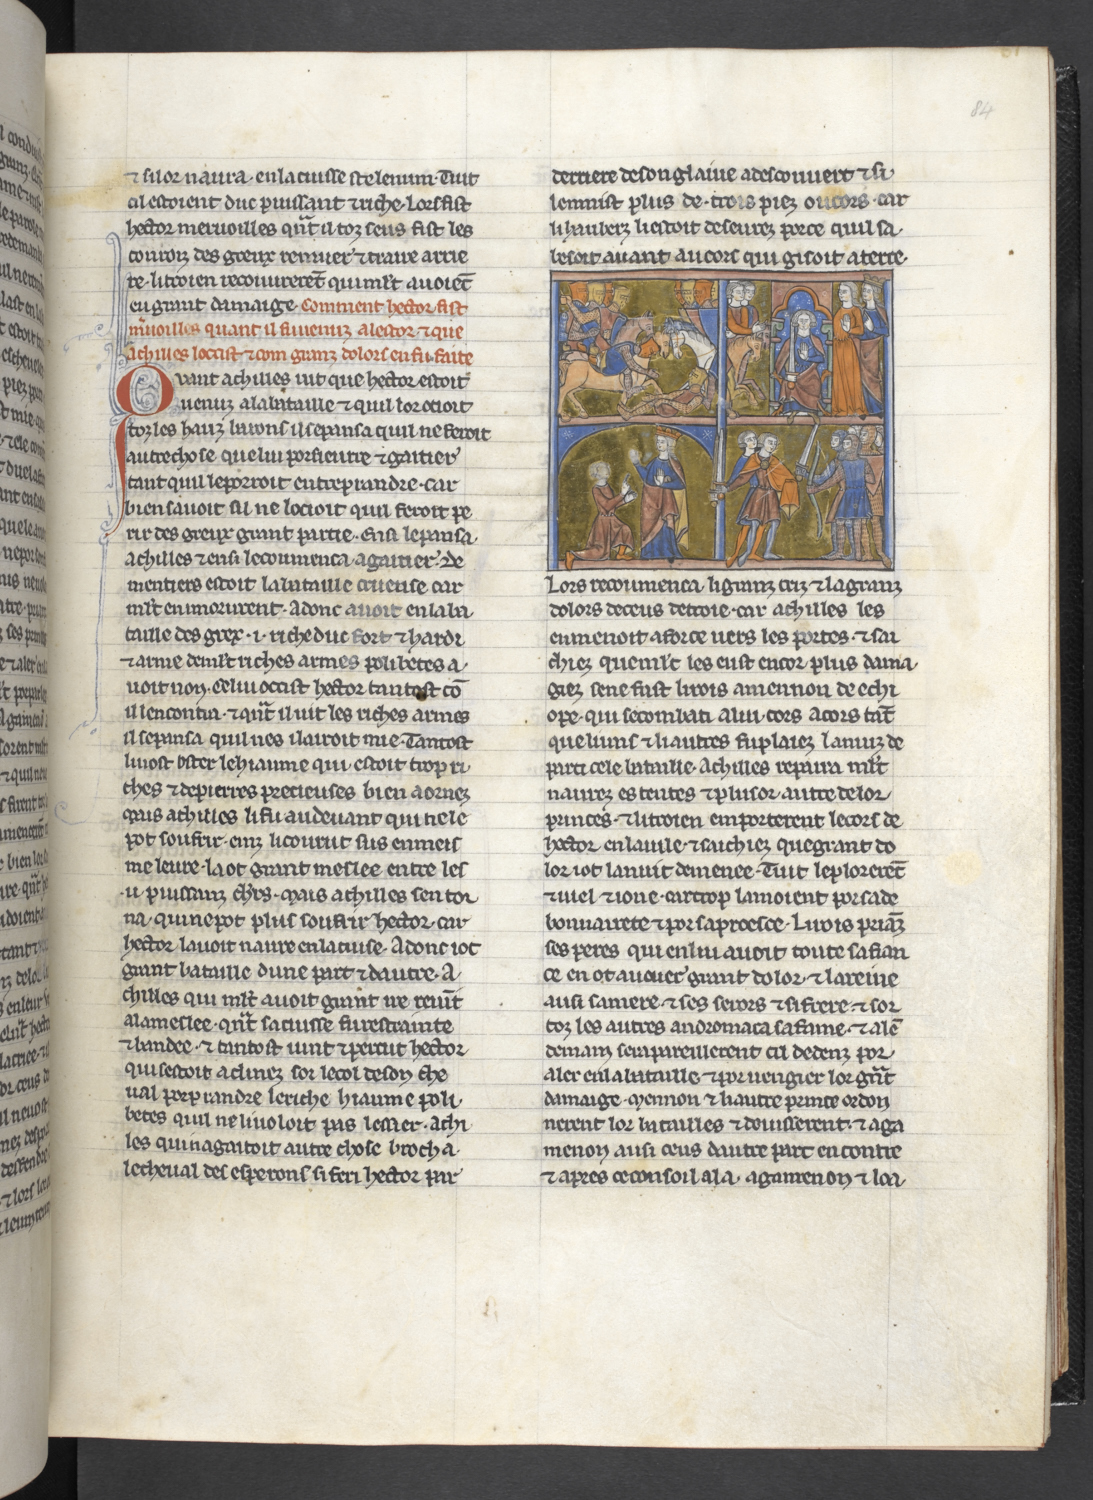 84
⁊ si lor naura en la cuisse sce lenum. Tuit
cil estoient duc puissant ⁊ riche. Lors fist
hector meruoilles qñt il toz seus fist les
conroiz des greux remuer ⁊ traire arrie
re. li troien recouurerēt qui ml't auoiēt
eu grant damaige. Coment hector fist
m̃uoilles quant il fu uenuz a lestor ⁊ que
achilles locist ⁊ com granz dolors en fu faite
Quant achilles uit que hector estoit
uenuz a la bataille ⁊ quil lor ocioit
toz les hauz barons il se pansa quil ne feroit
autre chose que lui porsieurre ⁊ gaitier
tant quil le porroit entreprandre. car
bien sauoit sil ne locioit quil feroit pe
rir des greux grant partie. Ensi le pansa
achilles ⁊ ensi le coumenca a gaitier. De
mentiers estoit la bataille crueuse car
ml't en i morurent. Adonc auoit en la ba
taille des grex .i. riche duc fort ⁊ hardi
⁊ arme de ml't riches armes polibetes a
uoit non. Celui occist hector tantost cō
il lencontra. ⁊ qñt il uit les riches armes
il se pansa quil nes i lairoit mie. Tantost
li uost oster le hiaume qui estoit trop ri
ches ⁊ de pierres precieuses bien aornez
Mais achilles li fu au deuant qui ne le
pot soufrir. einz li courut sus en meis
me leure. la ot grant meslee entre les
.ii. puissanz chrs. Mais achilles sen tor
na. qui ne pot plus soufrir hector. car
hector lauoit naure en la cuisse. Adonc i ot
grant bataille dune part ⁊ dautre. A
chilles qui ml't auoit grant ire reuīt
a la meslee. qñt sa cuisse fu restrainte
⁊ bandee. ⁊ tantost uint ⁊ percut hector
qui sestoit aclinez sor le col de son che
ual por prandre le riche hiaume poli
betes quil ne li uoloit pas lessier. Achi
les qui nagaitoit autre chose brocha
le cheual des esperons si feri hector par
derriere de son glaiue a descouuert ⁊ si
len mist plus de trois piez ou cors. car
li hauberz li estoit deseurez por ce quil sa
bessoit auant au cors qui gisoit a terre.
Lors recoumenca li granz criz ⁊ la granz
dolors de ceus de troie. car achilles les
enmenoit a force uers les portes. ⁊ sai
chiez que ml't les eust encor plus dama
giez se ne fust li rois amennon de echi
ope. qui se combati a lui cors a cors tāt
que li uns ⁊ li autres fu plaiez. La nuiz de
parti cele bataille. Achilles repaira ml't
naurez es tentes ⁊ plusor autre de lor
princes. ⁊ li troien emporterent le cors de
hector en la uile. ⁊ saichiez que grant do
lor i ot la nuit demenee. Tuit le plorerēt
⁊ uiel ⁊ ione. car trop lamoient por sa de
bonnairete ⁊ por sa proesce. Li rois priāz
ses peres qui en lui auoit toute sa fian
ce en ot au cuer grant dolor. ⁊ la reine
ausi sa mere. ⁊ ses serors ⁊ si frere. ⁊ sor
toz les autres andromaca sa fame. ⁊ a lē
demain sen apareillerent cil dedenz por
aler en la bataille ⁊ por uengier lor gñt
damaige. Mennon ⁊ li autre prince ordon
nerent lor batailles ⁊ deuisserent. ⁊ aga
menon ausi ceus dautre part encontre
⁊ apres ce consoil ala. agamenon ⁊ loa